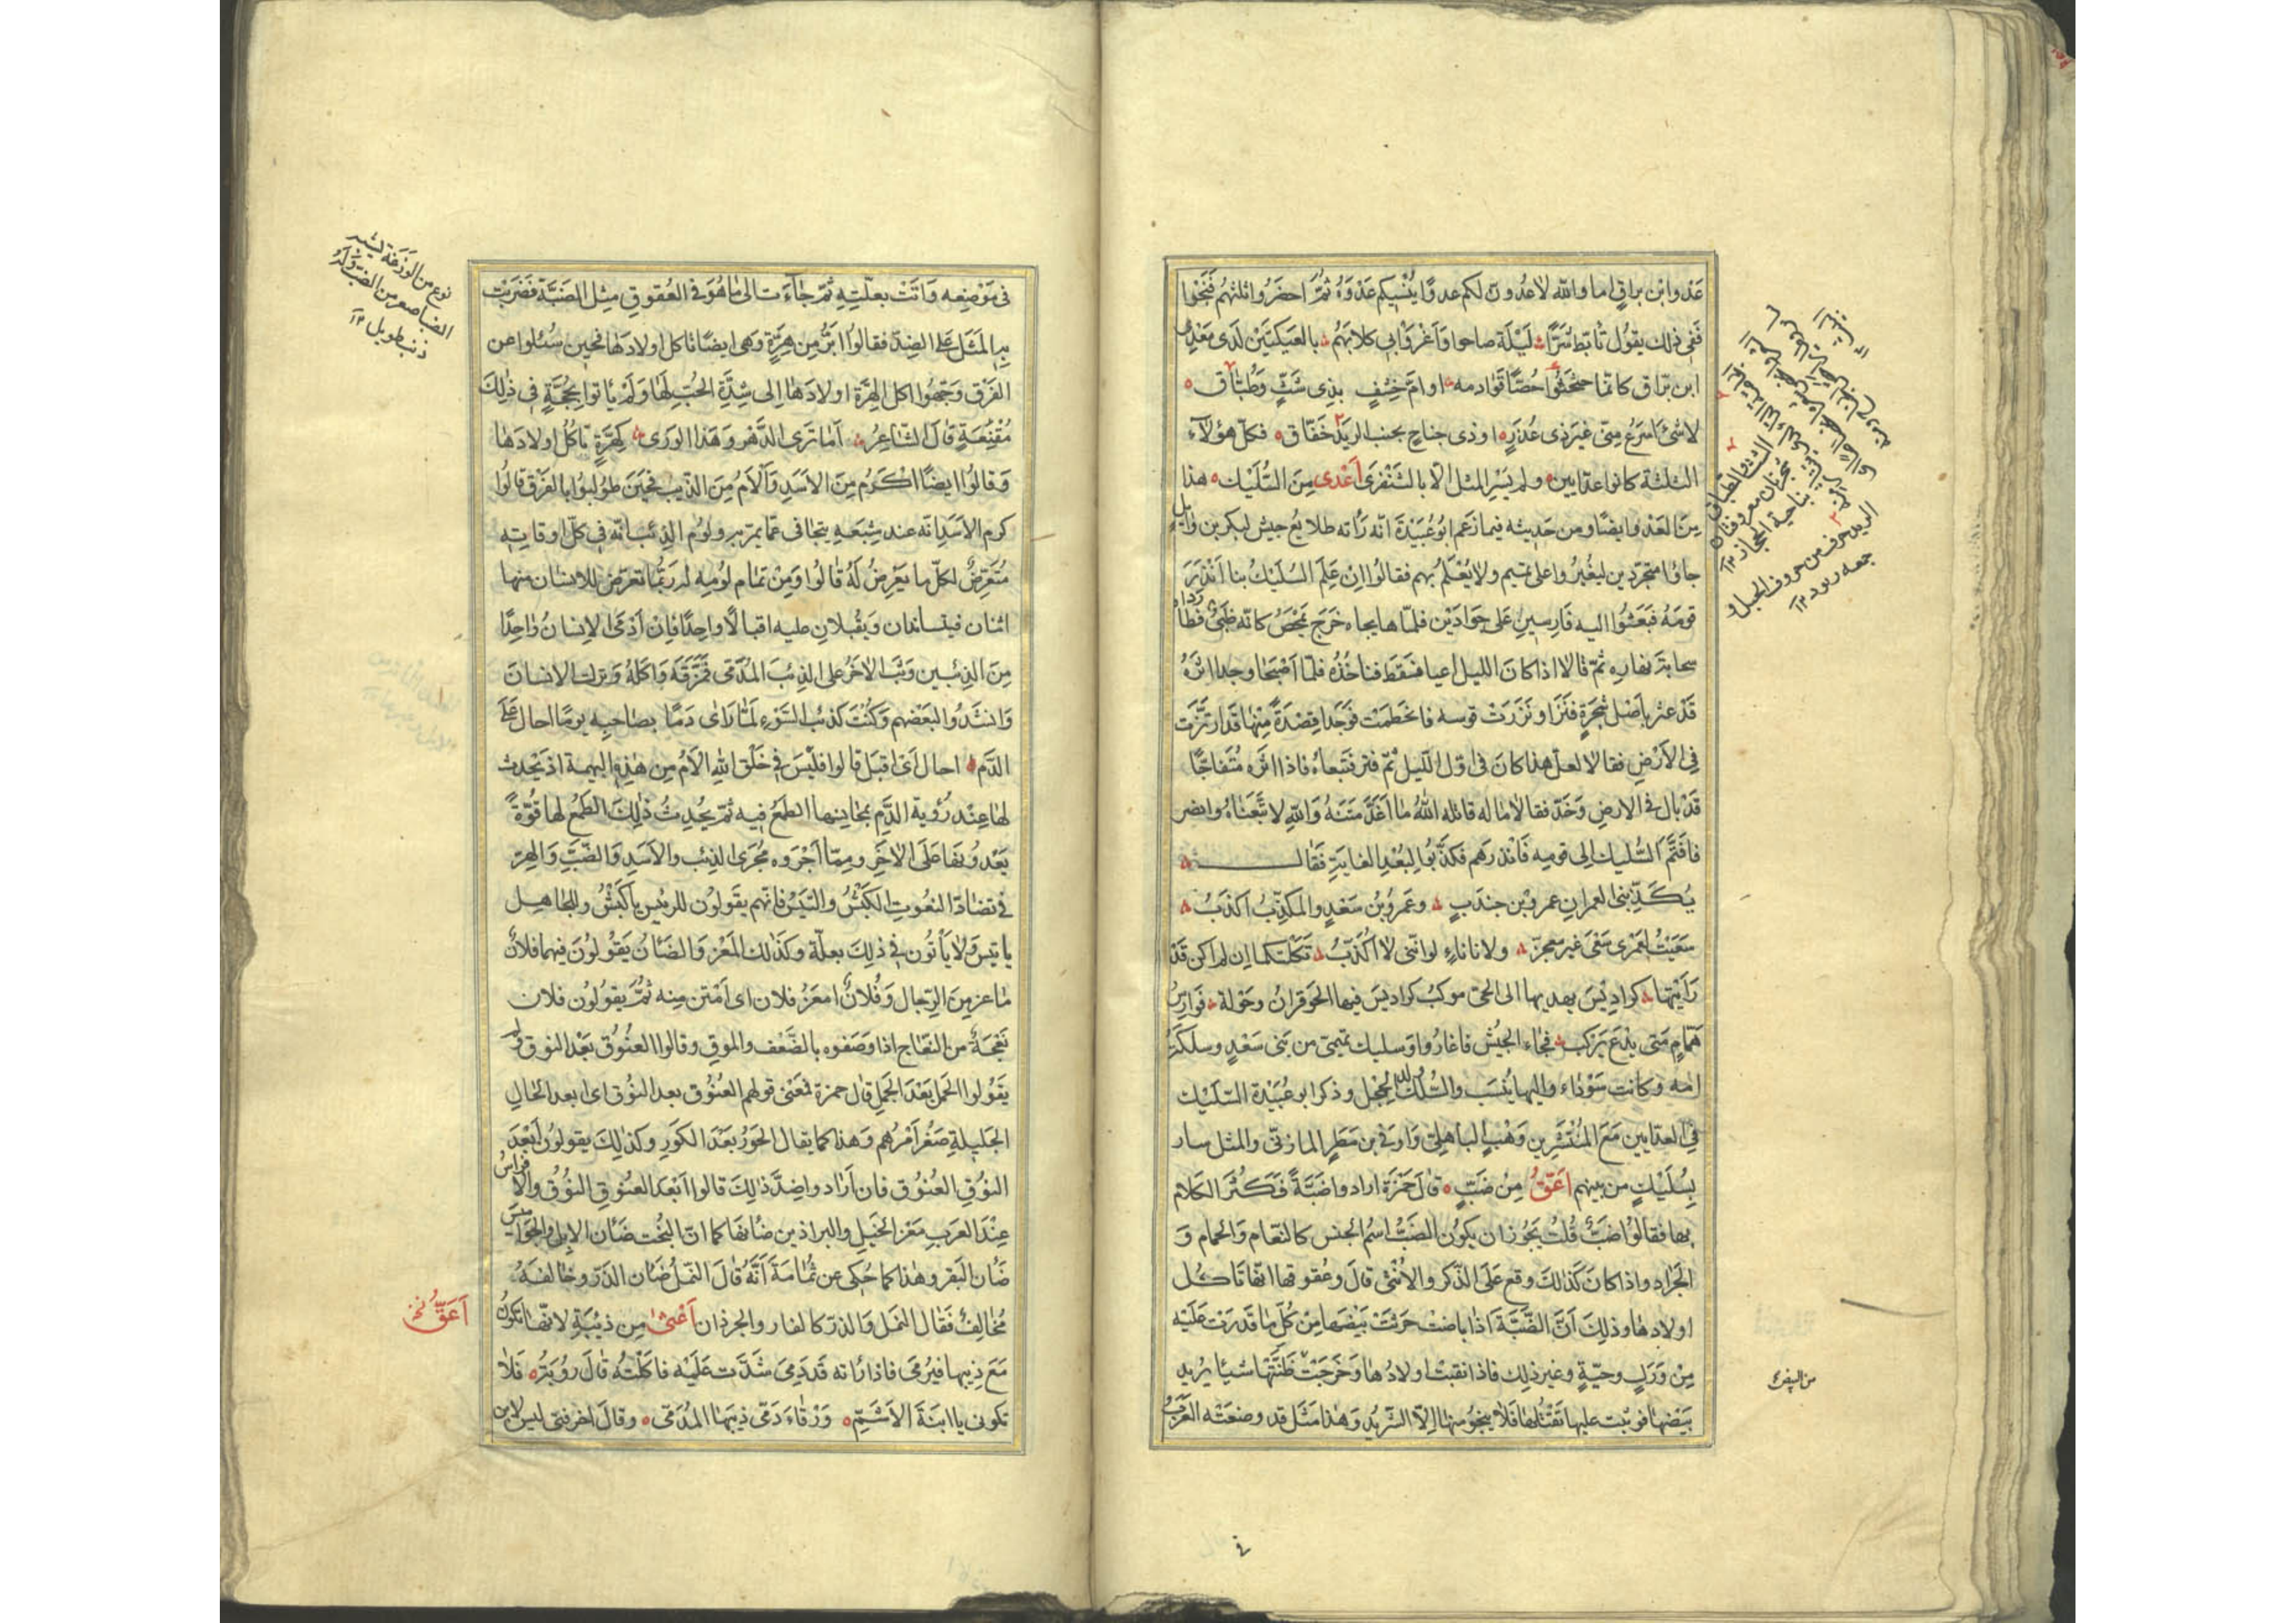 عَدْو ابن براقٍ اما والله لاعدُونّ لكم عدوًا ينسيكم عَدْوَهُ ثمّ احضَرُوا ثلثتهُم فنَجَوْا
فَفِى ذلك يقُول تأبّط شَرًّا ليْلَة صاحوا وَاَغْرَوْا بى كلابَهُم بالعَيكتَيْن لَدى مَعْدى
ابن برّاق كانّما حثحثُوا حُصًّا قَوادمه او امّ خِشْفٍ بذِى شَثٍّ وَطُبّاق
لا شئَ اسرَعُ مِنّى غيرَ ذى عُذَرٍ او ذى جناحٍ بجنب الريَدْ خَفّاق فكلّ هؤلآء
الثلثة كانوا عدّايين ولم يَسِر المثل الّا بالشَنْفَرى اَعْدى مِنَ السُّلَيْك هذا
مِنَ العَدْو ايضًا ومن حَديثه فيما زعَم ابُو عُبَيْدَة انّه رَأته طلايعُ جيش لبكر بن وايل
جاؤا متجرّدين ليغيُروا على تميم ولا يُعْلَمُ بهم فقالوا اِنْ عَلِمَ السُلَيْك بنا اَنْذَرَ
قومَهُ فبَعَثُوا اليه فَارِسينِ عَلى جَوادَيْن فلمّا هايجاه خَرَجَ يمْحَصُ كانّه ظَبىٌ فطَارَدَاه
سحابة نهاره ثمّ قالا اذا كانَ الليل اعيا فسَقَطَ فناخُذُه فلمّا اَصْبَحا وجدا اثرَهُ
قَدْ عثر باَصْل شجَرَةٍ فنَزَا ونَزَرَتْ قوسه فانحَطمَتْ فوَجَدا قِصْدَةً مِنْها قَد ارتزّت
فِى الاَرْضِ فقالا لعلّ هذا كانَ فى اوّل اللّيل ثمّ فتر فتبعاهُ فاذا اثره مُتَفاجًّا
قَدْ بال فى الارضِ وَخَدّ فقالا ما له قاتله اللهُ ما اَشَدَّ مَتْنَهُ وَاللهِ لا تَبِعْناهُ وانصرفا
فتَمّ السُّليك الى قومِه فَانذرهم فكَذّبُوا لبُعْدِ الغايَةِ فَقال
يُكَذّبنى العمرانِ عمرو بْن جندَبٍ وعَمرُو بْنُ سَعْدٍ والمكذّبُ اكذَبُ
سَعَيْتُ لعَمْرى سَعْىَ غير معجزّ ولا نأناءٍ لو انّنى لا اُكذَّبُ ثَكلْتكما ان لم اكن قَدْ
رَاَيْتها كراديْسَ يهديها الى الحىّ موكبُ كراديسَ فيها الحوفزانُ وحَوْلهُ فَوارِسُ
هَمّامٍ مَتى يَدْعُ يَرْكب فجاءَ الجيْش فاغارُوا وسليك تميمىّ من بَنى سَعْدٍ وسلكَةُ
امه وكانت سَوْداء واليها يُنسَب والسُّلَكُ ولد الحجل وذكر ابو عُبَيْدة السّلَيْك
فِى العدّايين مَعَ المُنْتشرِ بن وَهْبٍ الباهلىّ وَاوفى بن مَطرٍ المازنىّ والمثل سار
بسُلَيْكٍ من بينهم اَعَقُّ مِنْ ضَبٍّ قالَ حَمْزَة ارادوا ضَبّةً فَكَثُرَ الكلام
بها فقالُوا ضَبٌّ قُلْتُ يَجُوز ان يكون الضَبُّ اسْمُ الجنس كالنّعام وَالحمام وَ
الجَراد واذا كانَ كَذلكَ وقع عَلَى الذّكر والاُنْثى قالَ وعُقوقها انّها تَاكُل
اولادها وذلِكَ اَنَّ الضّبَّةَ اذا باضَتْ حَرسَتْ بَيْضَها مِنْ كُلِّ ما قَدَرَتْ عَلَيْه
مِنْ وَرَلٍ وحيّةٍ وغير ذلِك فاذا نقبَتْ اولادُها وَخَرَجَتْ ظَنَّتْها شيئا يُريد
بَيْضَها فوثبت عليها تَقْتُلها فَلا ينْجُو منها اِلّا الشّريْدُ وَهٰذا مَثَل قد وضعَتْه العَرَبُ
الشثّ والطبّاق
شجرتان معروفتان
بناحية الحجاز ١٢
الريد حرف من حروف الجبل و
جمعه ريود ١٢
من البيض
فى مَوْضِعِه وَاَتَتْ بعلّتِهِ ثمّ جآءَت الى ما هُوَ فى العُقوقِ مِثِل الضَبَّة فضَرَبَتْ
بِهِ المَثَل عَلَى الضِدّ فقالُوا ابَرُّ مِن هِرَّةٍ وَهى ايضًا تاكل اولادَها فحينَ سُئلوا عن
الفَرْقِ وَجّهُوا اكل الهِرَّة اولادَهَا اِلى شِدَّةِ الحُبِّ لهَا وَلَمْ يأتوا بحُجَّةٍ فى ذٰلِكَ
مُقْنِعَةٍ قالَ الشّاعِرُ اَما تَرى الدَّهْر وَهَذا الورى كهِرَّةٍ تاكُلُ اولادَها
وَقالُوا ايضًا اكْرَمُ مِنَ الاَسَدِ وَاَلْاَمُ مِنَ الذّيب فحِيَنَ طُولِبُوا بالفَرْق قالُوا
كرم الاَسَدِ انّه عند شِبَعِهِ يتجافى عمّا يمرّ بهِ ولوْم الذِئب انّه فى كلّ اوقاتِهِ
مُتَعَرِّضٌ لكلّ ما يَعْرِضُ لَهُ قالُوا وَمِنْ تمام لوُمِهِ انّه رَبُّما تعرّض للانسَان منها
اثنان فيتساندان وَيقْبلانِ عليه اقبالًا واحِدًا فاِنْ اَدْمَى الانسانُ واحِدًا
مِنَ الذِئبين وَثَبَ الاٰخَرُ على الذِئب المُدَمّى فمَزَّقَهُ وَاكَلَهُ وَترك الانسانَ
وَانشَدُوا لبَعْضهم وَكُنْتَ كذئب السَّوْءِ لمّا رَاى دَمًا بصاحِبِه يومًا احال عَلَى
الدَّم احال اَىْ اقبَل قالوا فليْسَ فى خَلْق اللهِ الاَمُ مِن هٰذِهِ البهيمة اذ يَحدث
لها عِنْد رُؤية الدَّمِ بمُجانِسها الطمَعُ فيه ثمّ يُحْدِثُ ذٰلِكَ الطَمَعُ لها قُوَّةً
يَعْدُو بَها عَلَى الاٰخَرِ ومِمّا اَجْرَوه مُجْرَى الذِئب والاَسَدِ وَالضَّبِّ وَالهِرّ
فى تضادّ النعُوتِ الكَبْشُ والتَيْسُ فانّهم يقولوُن للرئيسِ ياكَبْشُ وللجاهِل
ياتيس وَلا يَأْتُون فى ذٰلِكَ بعلّة وكذلك المَعْز وَالضَأنُ يَقُوْلوُنَ فيهما فلانٌ
ماعز مِنَ الرّجال وَفُلانٌ امعَزُ فلان اى اَمْتن مِنه ثُمَّ يقوُلوُن فلان
نَعْجَةٌ من النّعاج اذا وصَفوه بالضَّعْف والموقِ وقالوا العُنُوُق بَعْد النوق ولم
يَقُولوا الحَمل بَعْدَ الجَمَل قالَ حمزة فمَعْنى قولهم العُنُوق بعد النوُق اى ابعد الحالِ
الجَليلةِ صَغُرَ اَمْرُهم وَهذا كما يقال الحَوْرُ بعَدَ الكَورِ وكذٰلِكَ يقولون اَبَعْدَ
النوُقِ العُنوُق فان اَرادوا ضِدَّ ذٰلِكَ قالوا اَبَعْدَ العنوقِ النوُقُ والافراسُ
عِنْدَ العَربِ مَعْز الخَيلِ والبراذين ضأنها كما انّ البُخت ضَأن الاِبِل والجَواميس
ضأن البَقر وهٰذا كما حُكِى عن ثُمامَة اَنَّهُ قالَ النّملُ ضَأن الذَرّ وخالفَهُ
مُخالِفٌ فقال النمْل وَالذرّ كالفار والجرذان اَعْقُ مِن ذئبَةٍ لانّها تكونُ
مَعَ ذِيبها فيُرمى فاذا رأته قَد دَمِىَ شَدَّت عَلَيْه فاكَلتْهُ قالَ رُوْبَةُ فَلا
تكونى يا ابنَةَ الاَشَمِّ وَرْقاءَ دَمّى ذِيبَها المُدَمّى وقالَ اخر فتى ليسَ لابن
نوع من الوزغة يشبه
الضب اصغر من الضب وله
ذنب طويل ١٢
اَعَقُّ نخ